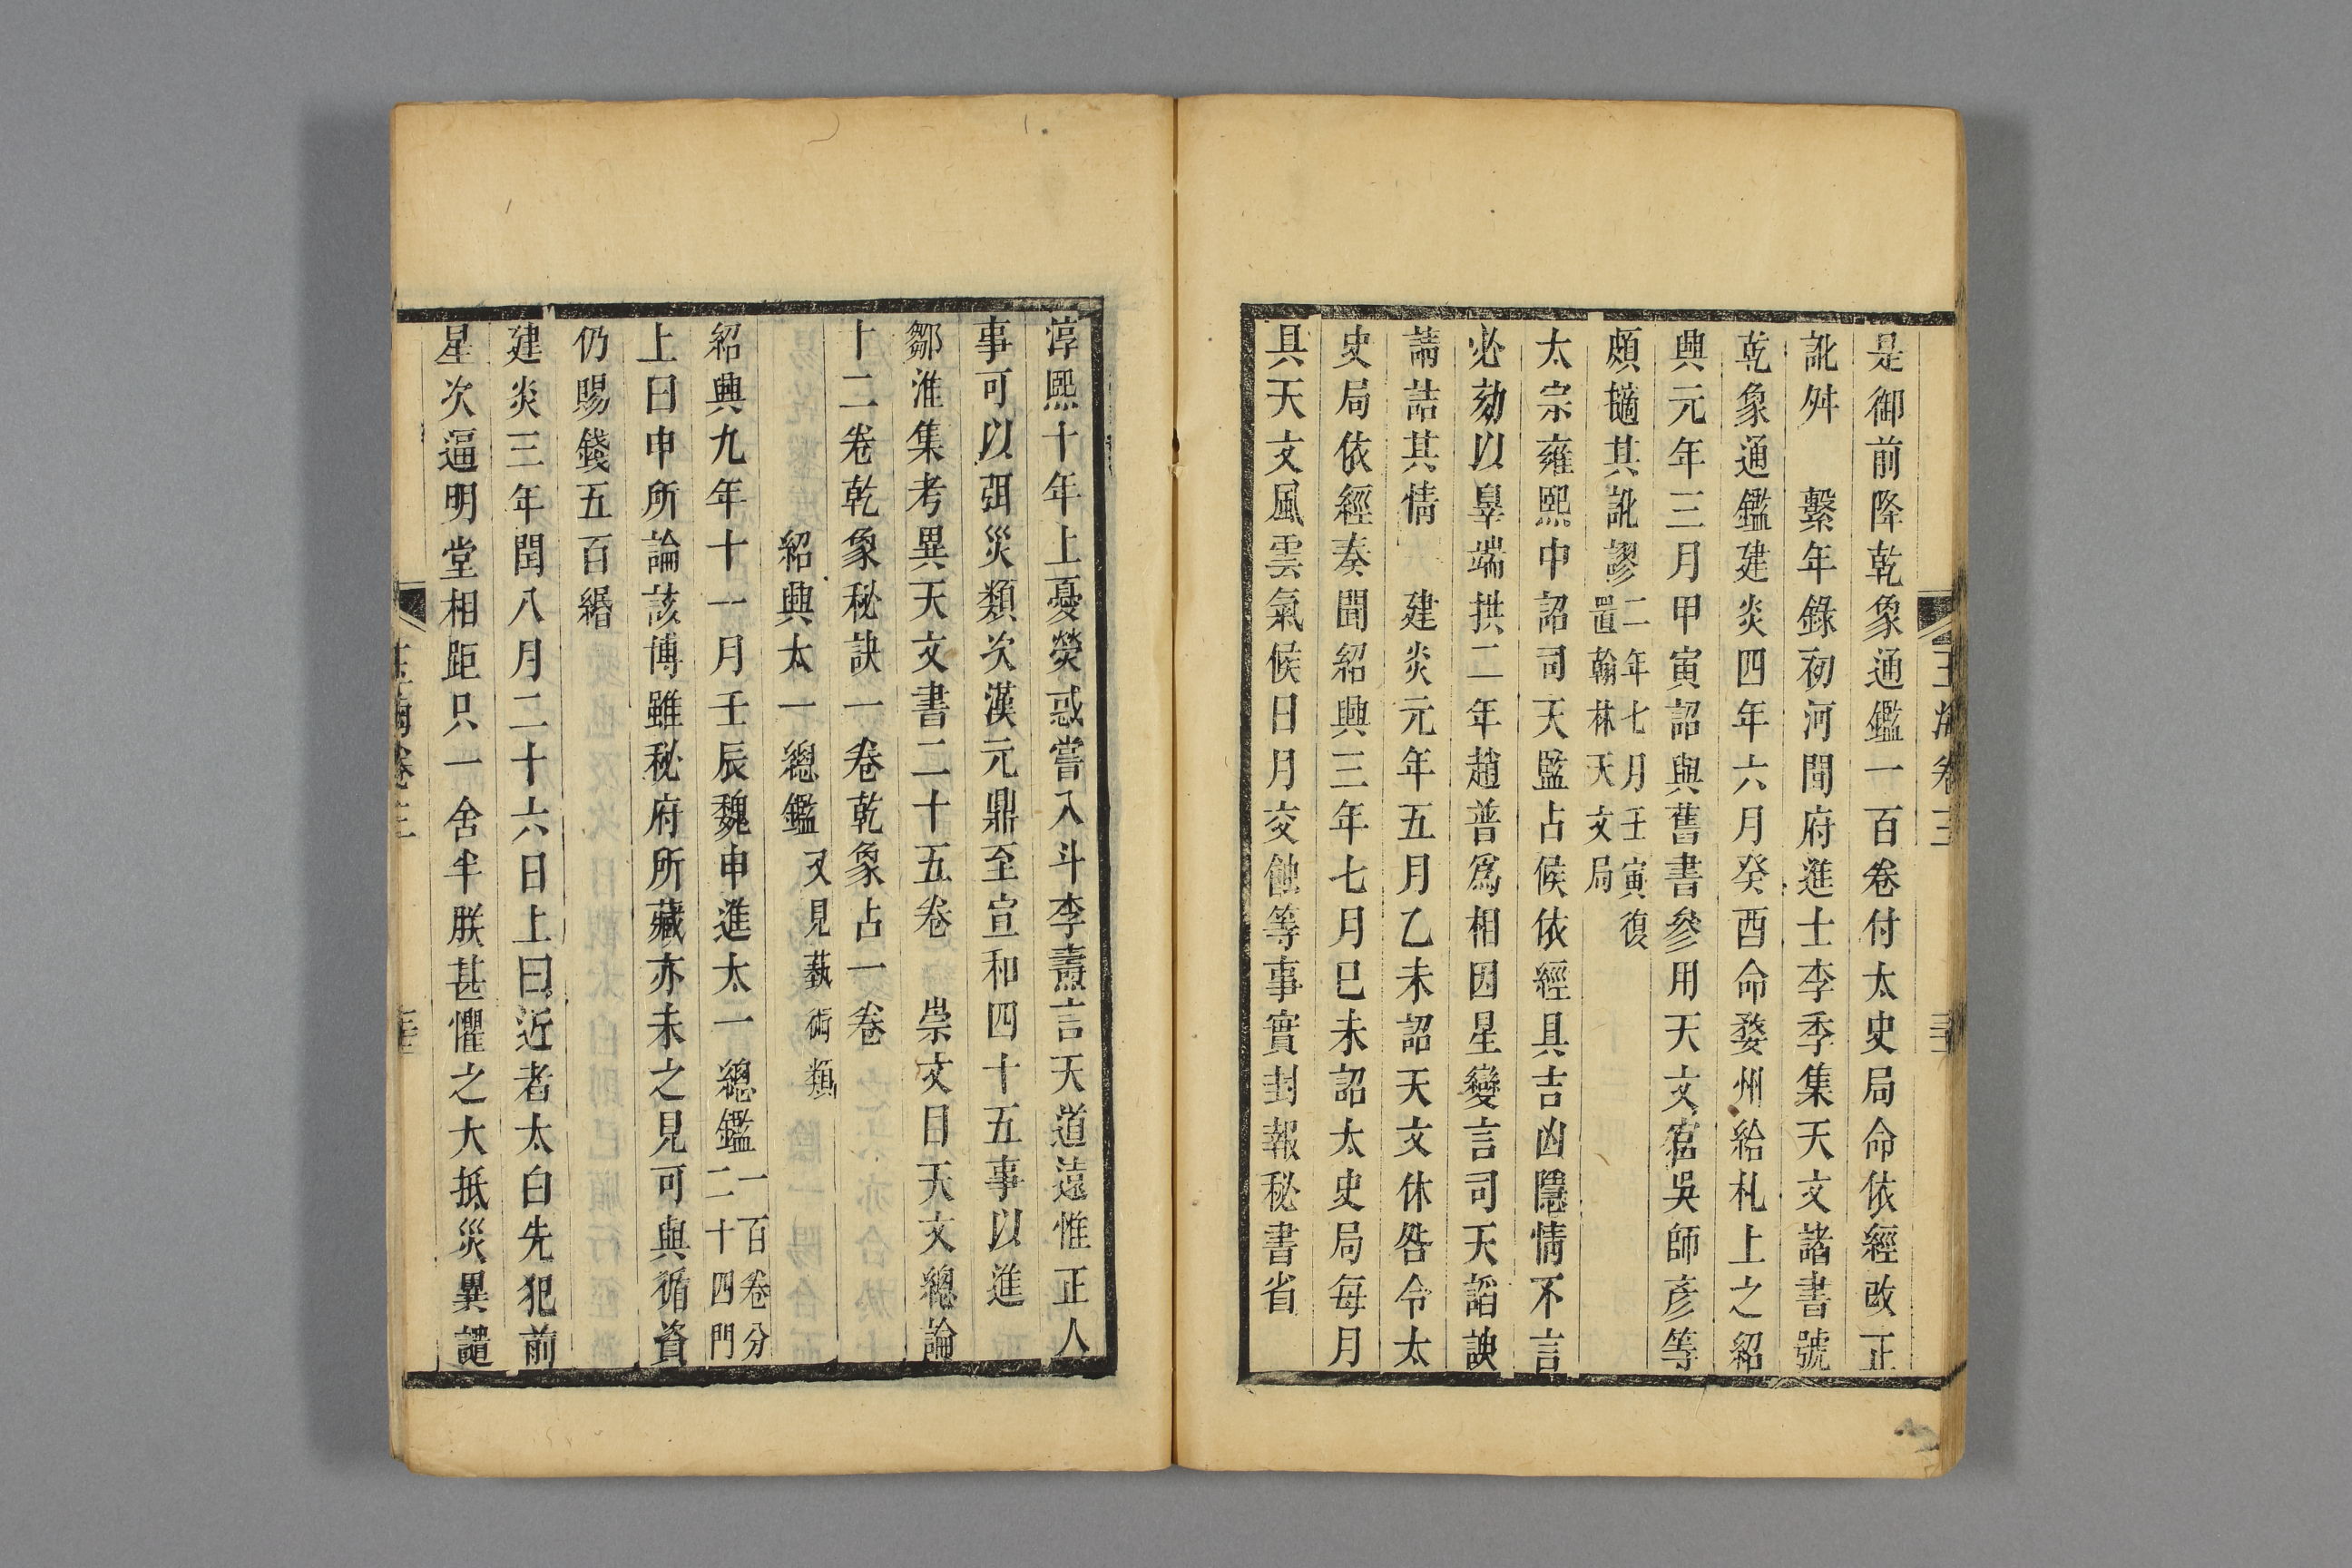 玉海卷三
是御前降乾象通鑑一百卷付太史局命依經改正
訛舛　繫年錄初河間府進士李季集天文諸書號
乾象通鑑建炎四年六月癸酉命婺州給札上之紹
興元年三月甲寅詔與舊書參用天文官吳師彥等
頗擿其訛謬二年七月壬寅復
置翰林天文局
太宗雍熙中詔司天監占候依經具吉凶隱情不言
必劾以辠端拱二年趙普爲相因星變言司天謟諛
請詰其情　建炎元年五月乙未詔天文休咎令太
史局依經奏聞紹興三年七月己未詔太史局每月
具天文風雲氣候日月交蝕等事實封報秘書省
淳熙十年上憂熒惑嘗入斗李燾言天道遠惟正人
事可以弭災類次漢元鼎至宣和四十五事以進
鄒淮集考異天文書二十五卷　崇文目天文總論
十二卷乾象秘訣一卷乾象占一卷
紹興太一總鑑又見藝術類
紹興九年十一月壬辰魏申進太一總鑑一百卷分
二十四門
上曰申所論該博雖秘府所藏亦未之見可與循資
仍賜錢五百緡
建炎三年閏八月二十六日上曰近者太白先犯前
星次逼明堂相距只一舍半朕甚懼之大抵災異譴